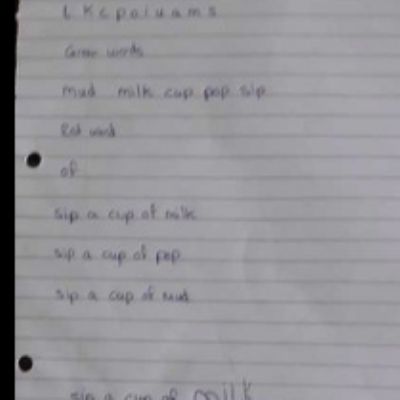 L K c p o i u a m s
Green words
Mud milk cup pop sip
Red word
of
sip a cup of milk
sip a cup of pop
sip a cup of mud
sip a cup of milk